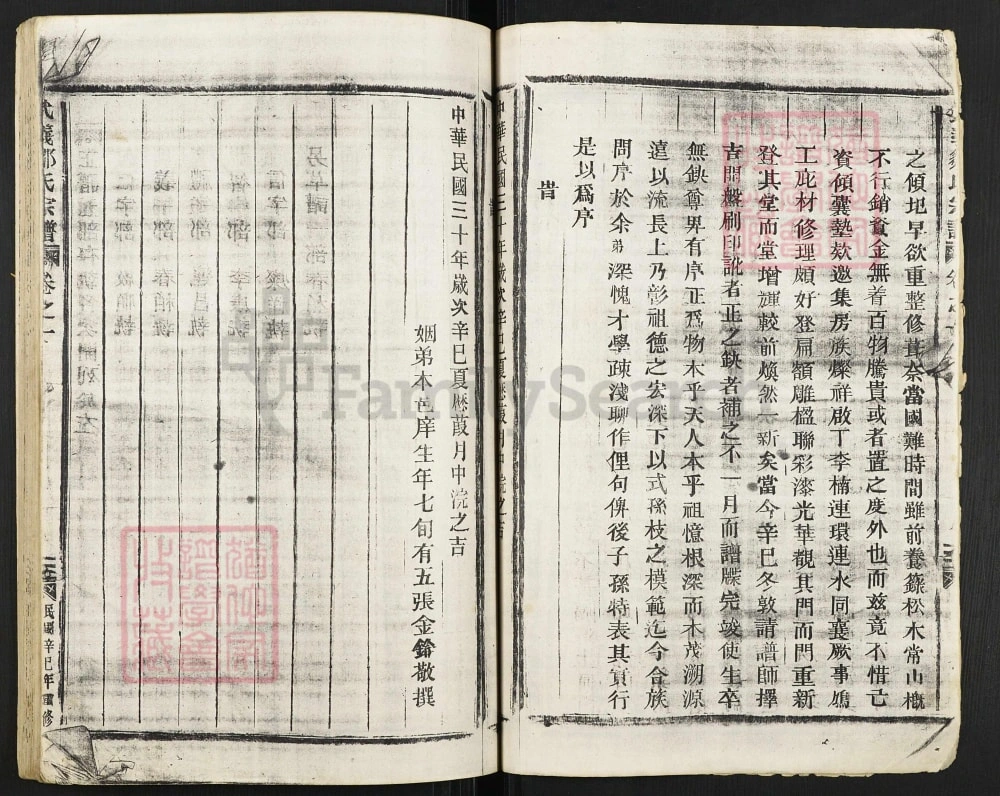 之傾圯早欲重整修葺奈當國難時間雖前養籙松木常山概
不行銷資金無着百物騰貴或者置之度外也而玆竟不惜亡
資傾囊塾欵邀集房族燦祥啟丁李楠連環連水同襄厥事鳩
工庇材修理頗好登扁額雕楹聯彩漆光華觀其門而門重新
登其堂而堂增輝較前煥然一新矣當今辛巳冬敦請譜師擇
吉開盤刷印訛者正之缺者補之不一月而譜牒完竣使生卒
無缺尊界有序正爲物木乎天人本乎祖憶根深而木茂溯源
遠以流長上乃彰祖德之宏深下以式孫枝之模範迄今合族
問序於余弟深愧才學疎淺聊作俚句俾後子孫特表其實行
是以爲序
昔
中華民國三十年歲次辛巳夏厯葭月中浣之吉
姻弟本邑庠生年七旬有五張金錀敬撰
氏宗譜
卷之一
民國辛巳年重修
FamilySearch